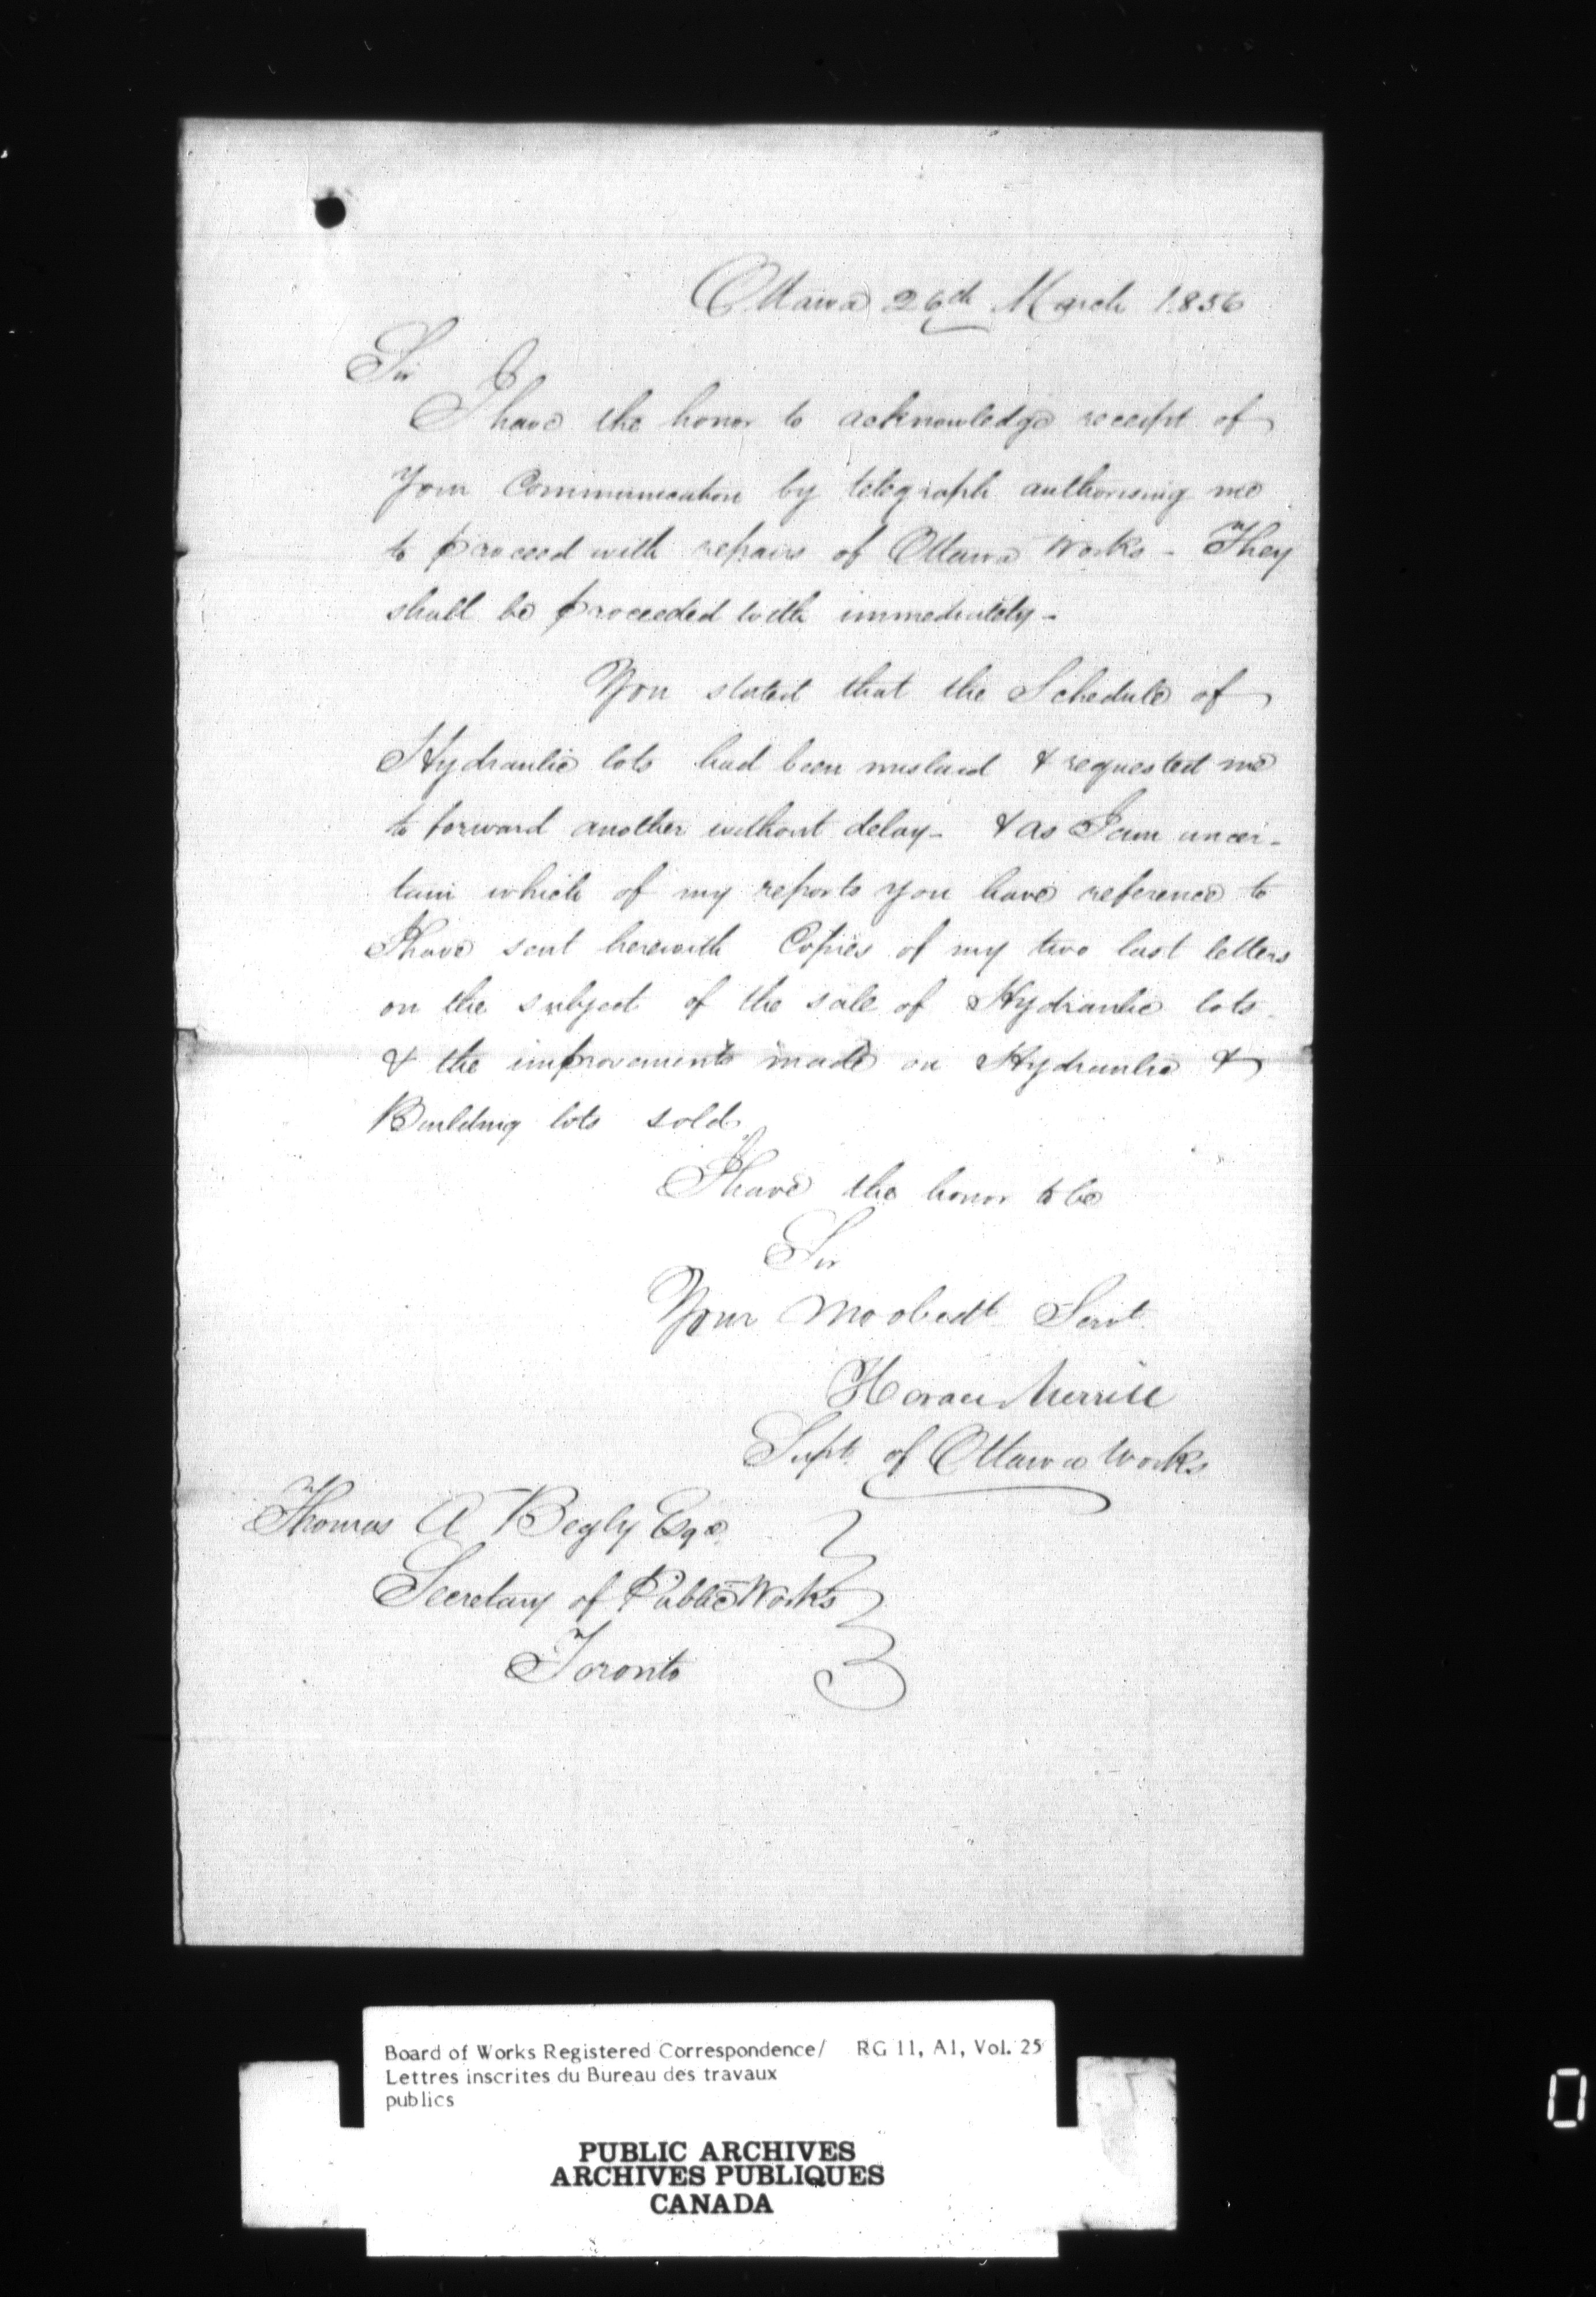 Ottawa 26th March 1856
Sir
I have the honor to acknowledge receipt of
your Communication by telegraph authorising me
to proceed with repairs of Ottawa Works - They
shall be proceeded with immediately -
You stated that the Schedule of
Hydraulic lots had been mislaid & requested me
to forward another without delay - & as I am uncer-
tain which of my reports you have reference to
I have sent herewith Copies of my two last letters
on the subject of the sale of Hydraulic lots
& the improvements made on Hydraulic &
Building lots sold.
I have the honor to be
Sir
Your Mo obedt Servt
Horace Merrill
Supt. of Ottawa Works
Thomas A Begly Esqe.
Secretary of Public Works
Toronto
Board of Works Registered Correspondence/ RG 11, A1, Vol. 25
Lettres inscrites du Bureau des travaux
publics
PUBLIC ARCHIVES
ARCHIVES PUBLIQUES
CANADA
0